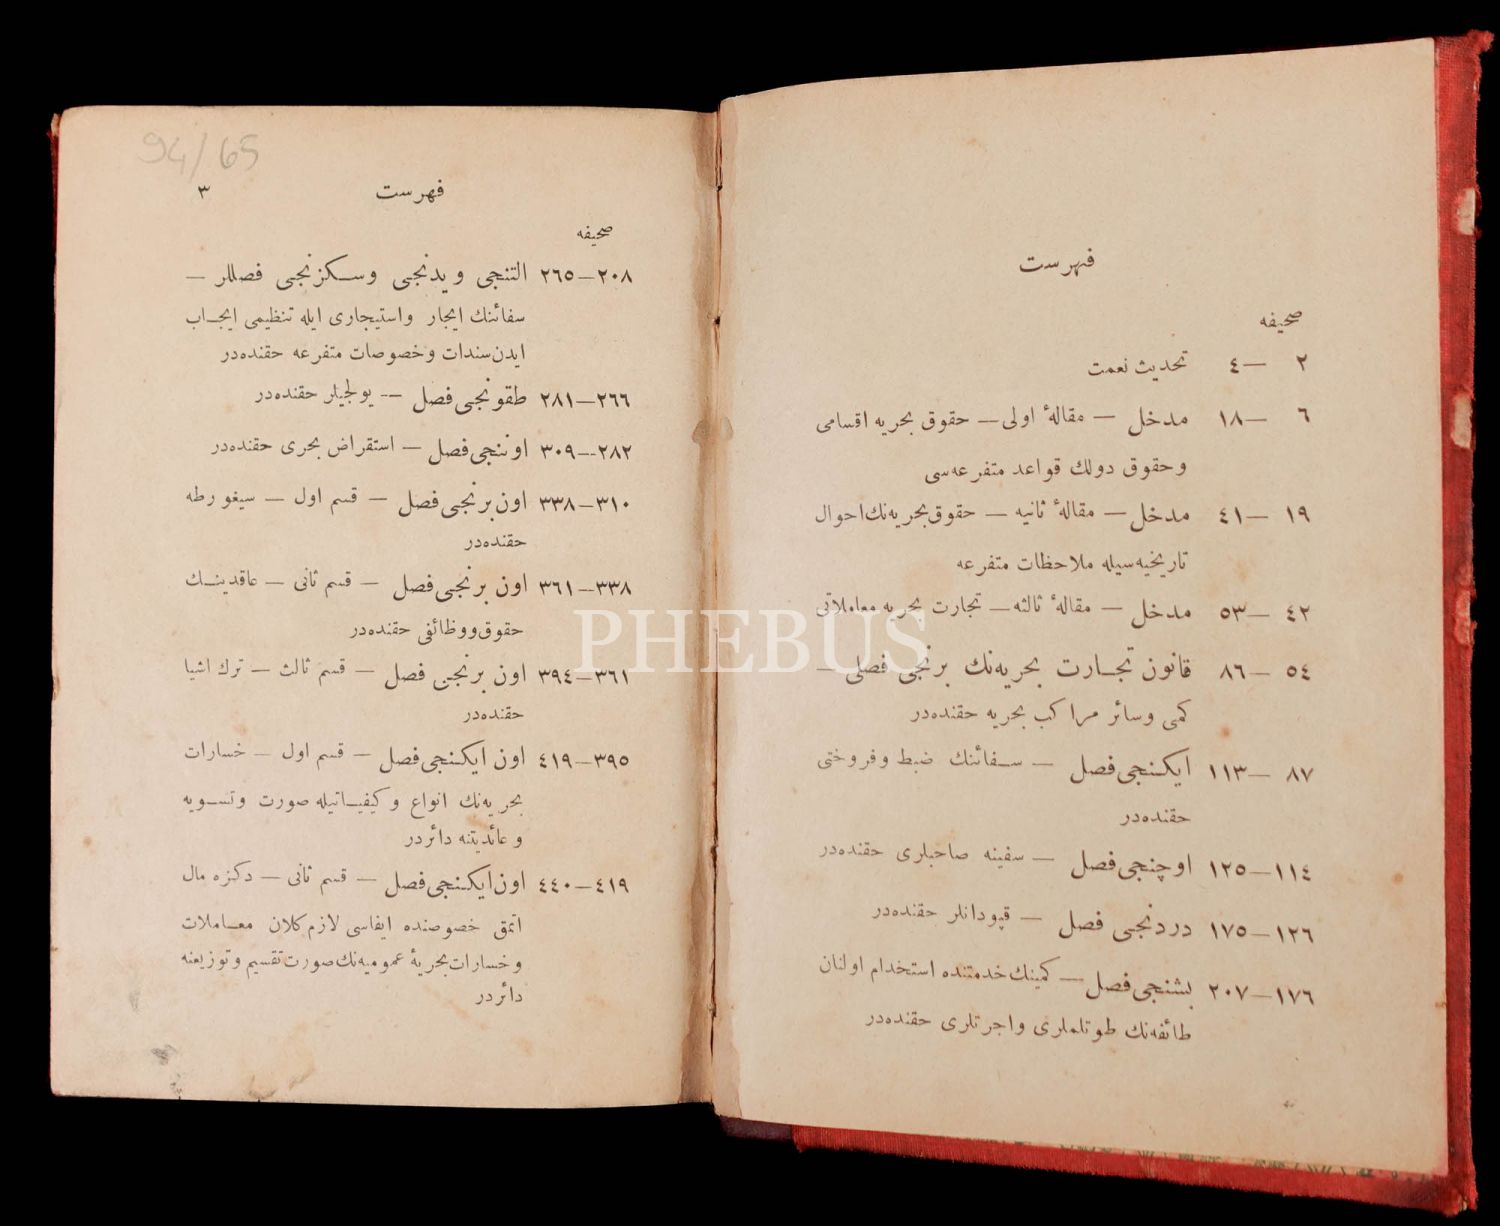 فهرست
صحيفه
٢ — ٤ تحديث نعمت
٦ — ١٨ مدخل — مقالهٔ اولی — حقوق بحريه اقسامی
وحقوق دولك قواعد متفرعه‌سی
١٩ — ٤١ مدخل — مقالهٔ ثانيه — حقوق بحريه‌نك احوال
تاريخيه‌سيله ملاحظات متفرعه
٤٢ — ٥٣ مدخل — مقالهٔ ثالثه — تجارت بحريه معاملاتی
٥٤ — ٨٦ قانون تجارت بحريه‌نك برنجی فصلی —
كمی وسائر مراكب بحريه حقنده‌در
٨٧ — ١١٣ ايكنجی فصل — سفائنك ضبط وفروختی
حقنده‌در
١١٤—١٢٥ اوچنجی فصل — سفينه صاحبلری حقنده‌در
١٢٦—١٧٥ دردنجی فصل — قپودانلر حقنده‌در
١٧٦—٢٠٧ بشنجی فصل — كمينك خدمتنده استخدام اولنان
طائفه‌نك طوتلملری واجرتلری حقنده‌در
فهرست ٣
صحيفه
٢٠٨—٢٦٥ التنجی ويدنجی وسكزنجی فصللر —
سفائنك ايجار واستيجاری ايله تنظيمی ايجاب
ايدن سندات وخصوصات متفرعه حقنده‌در
٢٦٦—٢٨١ طقونجی فصل -- يولجيلر حقنده‌در
٢٨٢--٣٠٩ اوننجی فصل — استقراض بحری حقنده‌در
٣١٠—٣٣٨ اون برنجی فصل — قسم اول — سيغورطه
حقنده‌در
٣٣٨—٣٦١ اون برنجی فصل — قسم ثانی — عاقدينك
حقوق ووظائفی حقنده‌در
٣٦١—٣٩٤ اون برنجی فصل — قسم ثالث — ترك اشيا
حقنده‌در
٣٩٥—٤١٩ اون ايكنجی فصل — قسم اول — خسارات
بحريه‌نك انواع وكيفياتيله صورت وتسويه
وعائديتنه دائردر
٤١٩—٤٤٠ اون ايكنجی فصل — قسم ثانی — دكزه مال
اتمق خصوصنده ايفاسی لازم كلان معاملات
وخسارات بحريهٔ عموميه‌نك صورت تقسيم وتوزيعنه
دائردر
94/65
PHEBUS